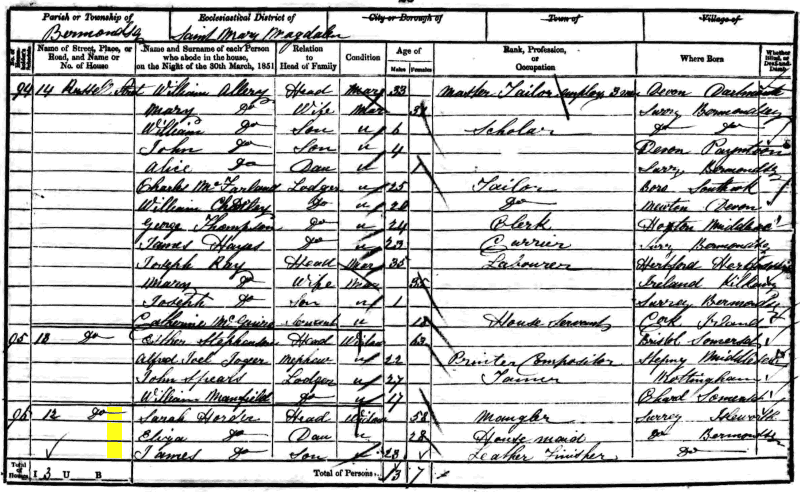 Parish or Township of Ecclesiastical District of City or Borough of Town of Village of
Bermondsey Saint Mary Magdalen
Name of Street, Place, or Road, and Name or No. of House Name and Surname of each Person who abode in the house, on the Night of the 30th March, 1851 Relation to Head of Family Condition Age of Males Females Rank, Profession, or Occupation Where Born Whether Blind, or Deaf-and-Dumb
94 14 Street William Allery Head Mar 33 Master Tailor Devon
Mary Do Wife Mar Surry Bermondsey
William Do Son u 6 Scholar Do Do
John Do Son u 4 Devon
Alice Do Dau u 1 Surry Bermondsey
Charles McFarland Lodger u 25 Tailor
William Do u Do Devon
George Thompson Do u 24 Clerk
James Hayes Do u 23 Currier Surry Bermondsey
Joseph Ray Head Mar 35 Labourer Hertford
Mary Do Wife Mar Ireland
Joseph Do Son u 1 Surrey Bermondsey
Catherine McGuire Servant u 18 House Servant Cork Ireland
95 13 Do Esther Stephenson Head Widow 63 Bristol Somerset
Alfred Joel Nephew u 22 Printer Compositor
John Spears Lodger u 27 Nottingham
William Mansfield Do u 17 Chard
96 12 Do Sarah Head Widow 58 Mangler Surrey
Eliza Do Dau u 28 House maid Do Bermondsey
James Do Son 23 Leather Finisher Do
Total of Houses I 3 U B Total of Persons 13 7